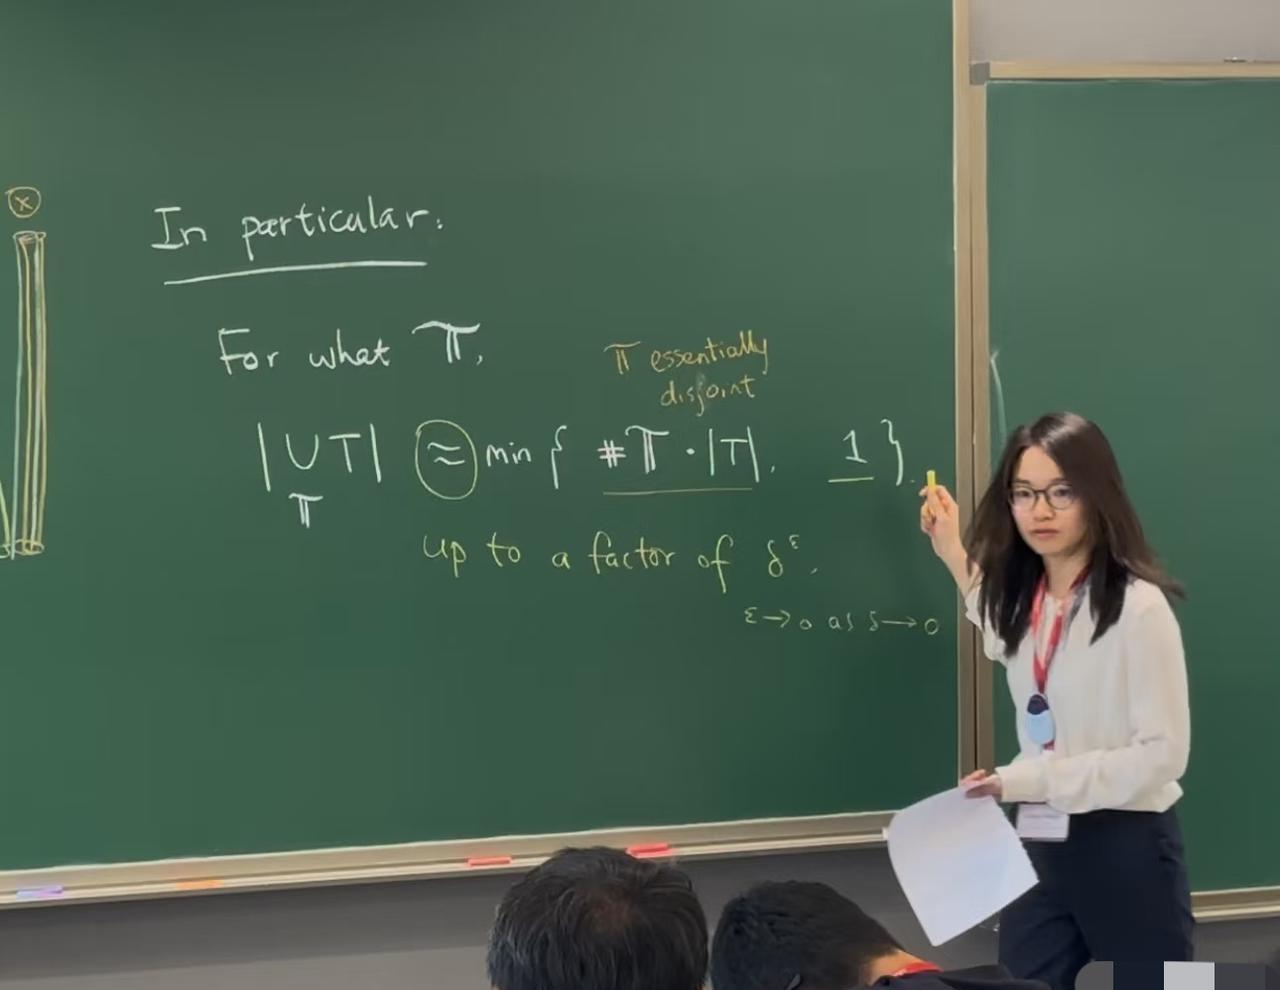 In particular:
For what 𝕋,
𝕋 essentially
disjoint
|∪T| ≈ min { #𝕋 · |T|, 1 }.
𝕋
up to a factor of δ^ε.
ε → 0 as δ → 0